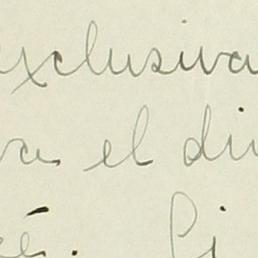 exclusiva
va el di
é. Pi